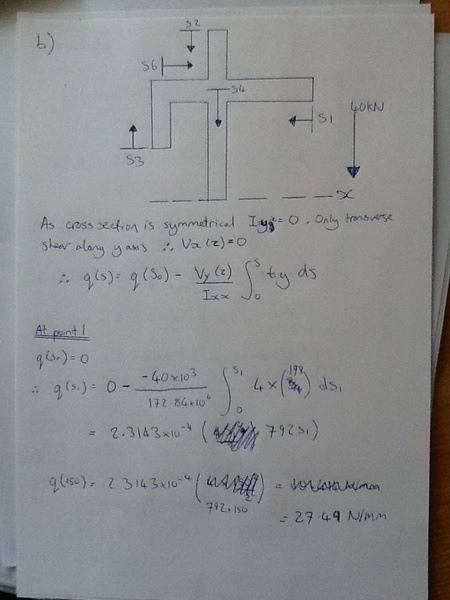 b)
S2
S6
S4
40kN
S1
S3
x
As cross section is symmetrical Ixy = 0. Only transverse
shear along y axis ∴ Vx(z)=0
∴ q(s) = q(S₀) - Vy(z)/Ixx ∫₀ˢ ty ds
At point 1
q(s₀) = 0
∴ q(s₁) = 0 - -40×10³/172.84×10⁶ ∫₀^S₁ 4×(198) ds₁
= 2.3143×10⁻⁴ ( 792s₁)
q(150) = 2.3143×10⁻⁴ ( ) =
792×150
= 27.49 N/mm